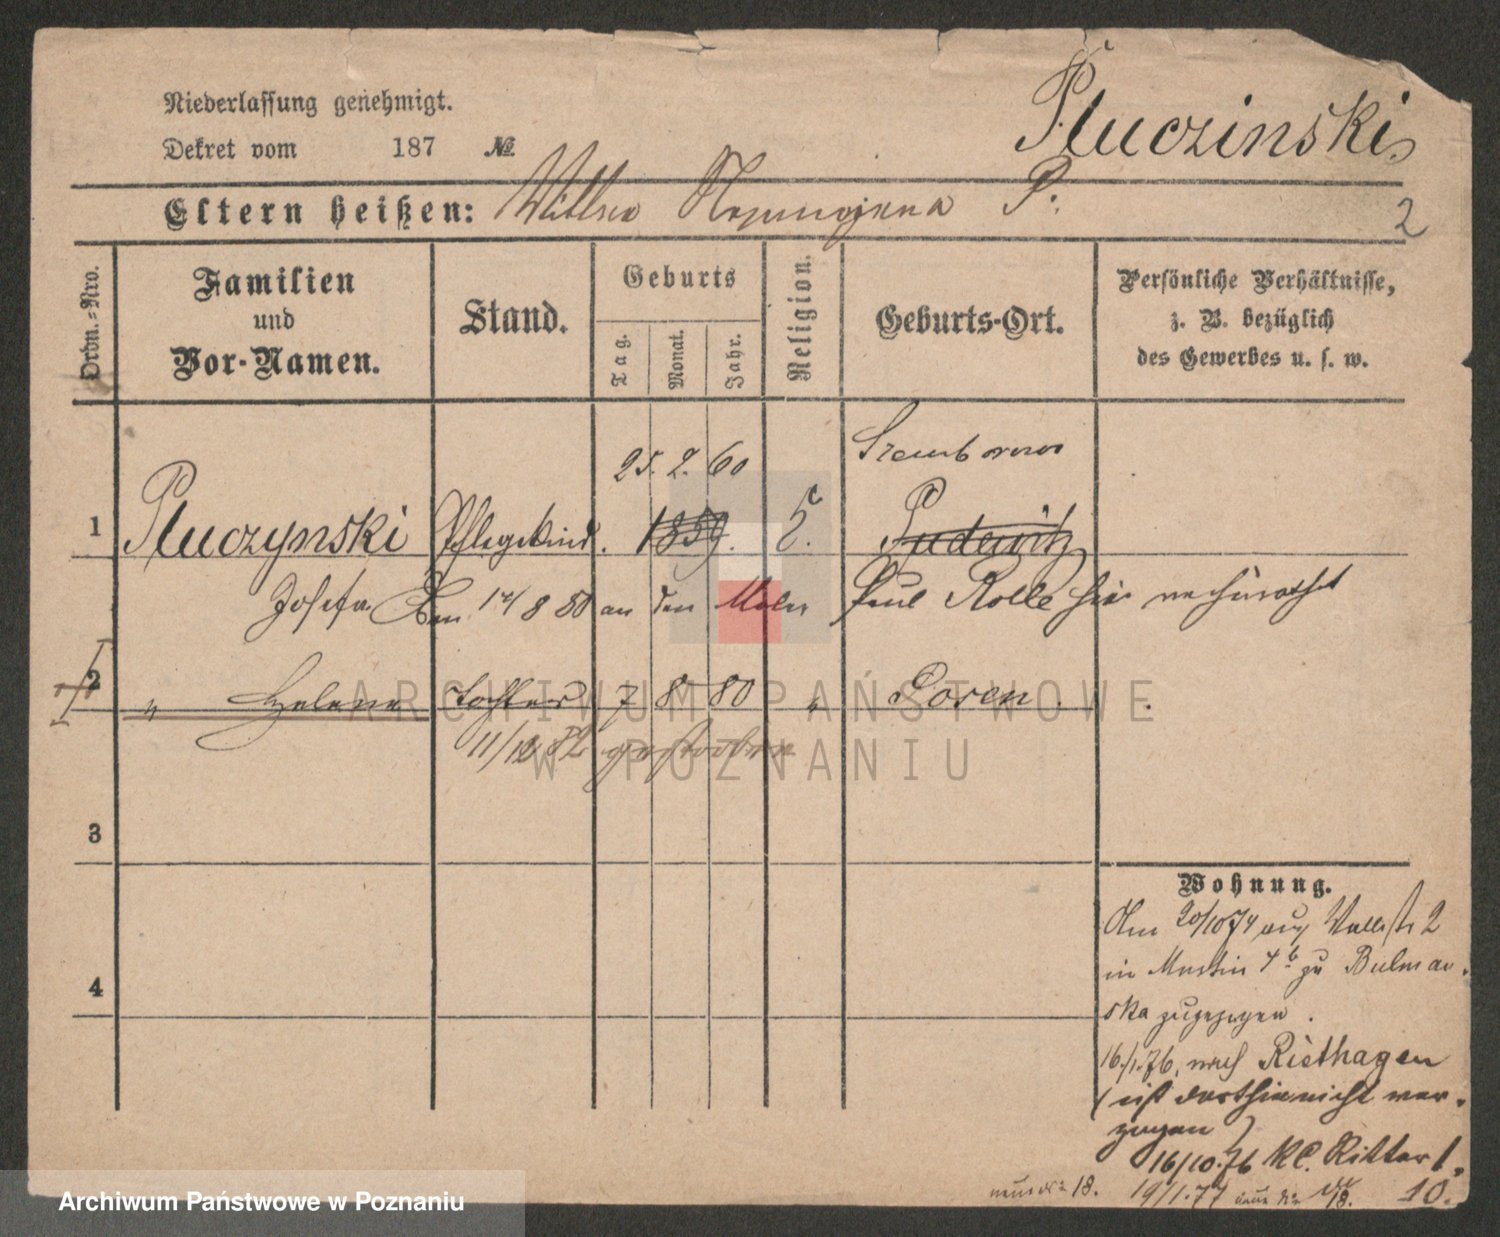 Pluczinski
Niederlassung genehmigt.
Dekret vom 187 №
Eltern heißen: Wittwe Nepomucena P.
2
Ordn.-Nro.
Familien
und
Vor-Namen.
Stand.
Geburts
Tag.
Monat.
Jahr.
Religion.
Geburts-Ort.
Persönliche Verhältnisse,
z. B. bezüglich
des Gewerbes u. s. w.
25. 2. 60
1 Pluczynski Pflegekind. 1859. Pudewitz
Josefa Den 14/8 80 an den Maler Paul Rolle hier verheirathet
2 " Helene Tochter 7 8 80 " Posen.
11/12 82 gestorben
3
4
Wohnung.
Am 20/10 74 aus Wallstr 2
in 4 b zu Bulman-
ska zugezogen.
16/1.76, nach Riethagen
(ist dorthin nicht ver-
zogen)
16/10.76 Kl. Ritter 1.
18. 19/1.77 18. 10.
ARCHIWUM PAŃSTWOWE
W POZNANIU
Archiwum Państwowe w Poznaniu